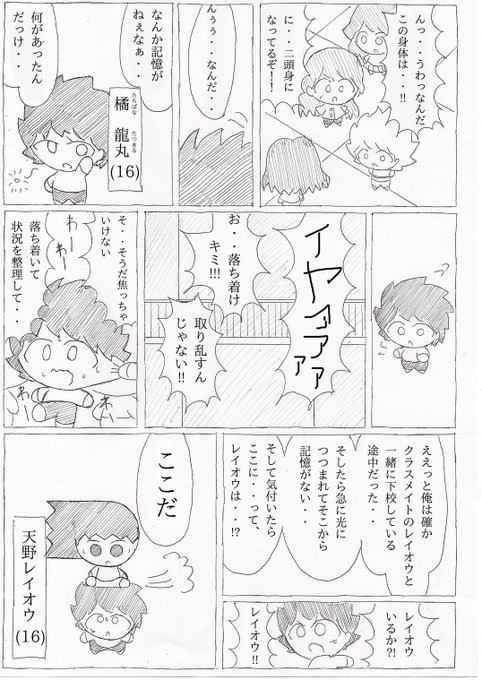 んっ・・うわっなんだ
この身体は・・!!
に・・二頭身に
なってるぞ!!
んぅぅ・・なんだ・・
なんか記憶が
ねぇなぁ・・
橘 龍丸
たちばな たつまる
(16)
何があったん
だっけ・・
イヤァァァァ
お・・落ち着け
キミ!!!
取り乱すん
じゃない!!
そ・・そうだ焦っちゃ
いけない
わー
わー
落ち着いて
状況を整理して・・
ええっと俺は確か
クラスメイトのレイオウと
一緒に下校している
途中だった・・
そしたら急に光に
つつまれてそこから
記憶がない・・
そして気付いたら
ここに・・って、
レイオウは・・!?
レイオウ
いるか?!
レイオウ!!
ここだ
天野レイオウ
(16)